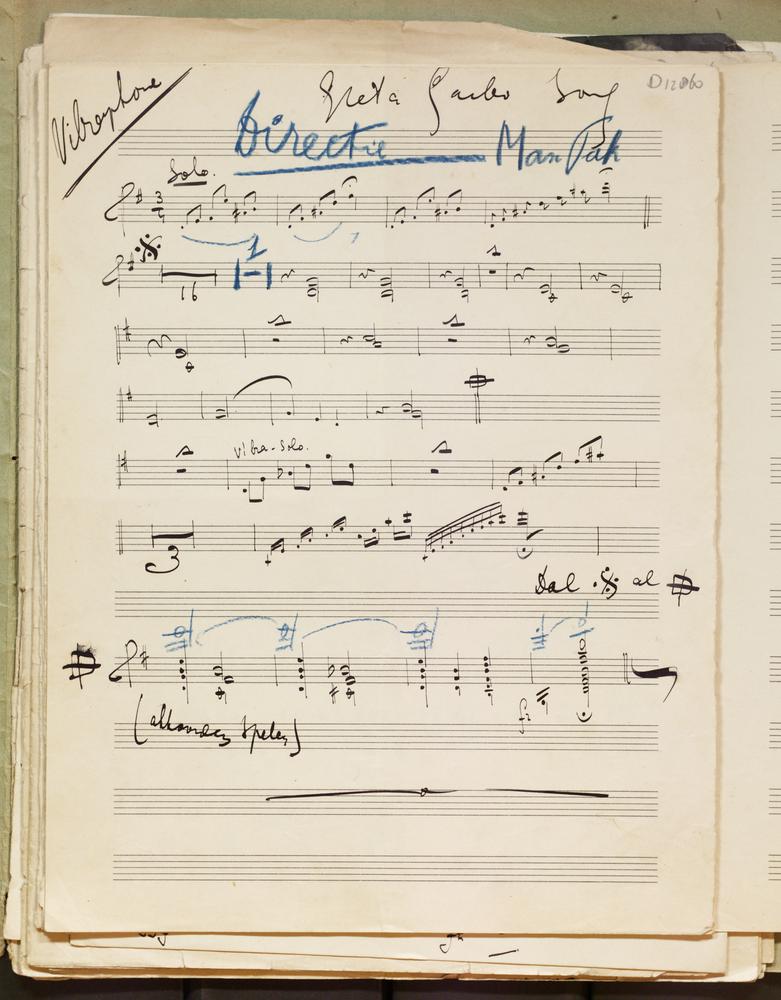 Vibraphone
Greta Garbo Song
D12060
Directie Man Pàk
Solo.
3
4
1
16
Vibra-Solo.
3
Dal 𝄋 al 𝄌
(akkoorden spelen)